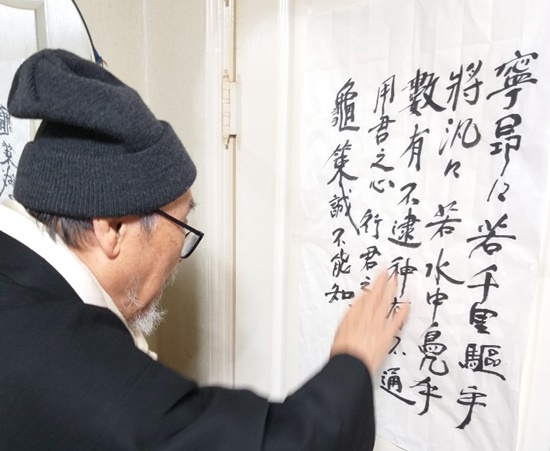 寧昂々若千里驅乎
將氾々若水中鳧乎
數有不逮神有不通
用君之心行君之
龜策誠不能知
龜策誠